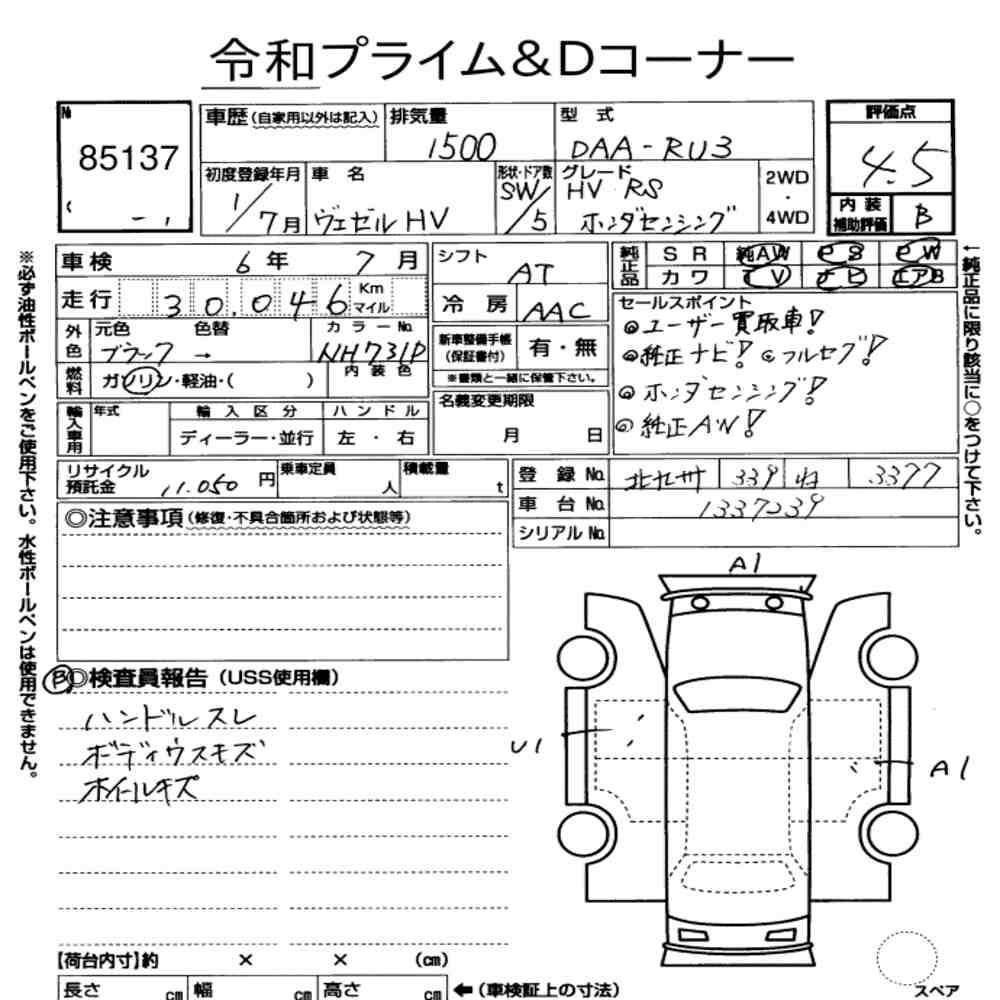 令和プライム&Dコーナー
№
85137
車歴 (自家用以外は記入)
排気量
1500
型 式
DAA-RU3
評価点
4.5
初度登録年月
1/7月
車 名
ヴェゼルHV
形状・ドア数
SW/5
グレード
HV RS
ホンダセンシング
2WD
・
4WD
内 装
補助評価
B
車検 6年 7月
シフト
AT
純正品
S R 純AW PS PW
カワ TV ナビ エアB
走行 30,046 Km
マイル
冷 房
AAC
セールスポイント
◎ユーザー買取車!
◎純正ナビ!◎フルセグ!
◎ホンダセンシング!
◎純正AW!
外色
元色 色替 カラーNo.
ブラック → NH731P
新車整備手帳
(保証書付)
有・無
※書類と一緒に保管下さい。
燃料
ガソリン・軽油・( )
内装色
名義変更期限
月 日
輸入車用
年式 輸入区分 ハンドル
ディーラー・並行 左・右
リサイクル
預託金
11.050 円
乗車定員
人
積載量
t
登録No. 北九州 339 ね 3377
車台No. 1337239
シリアルNo.
◎注意事項(修復・不具合箇所および状態等)
B
◎検査員報告(USS使用欄)
ハンドルスレ
ボディウスキズ
ホイールキズ
A1
U1
A1
【荷台内寸】約 × × (cm)
長さ cm 幅 cm 高さ cm ←(車検証上の寸法)
スペア
※必ず油性ボールペンをご使用下さい。水性ボールペンは使用できません。
←純正品に限り該当に○をつけて下さい。